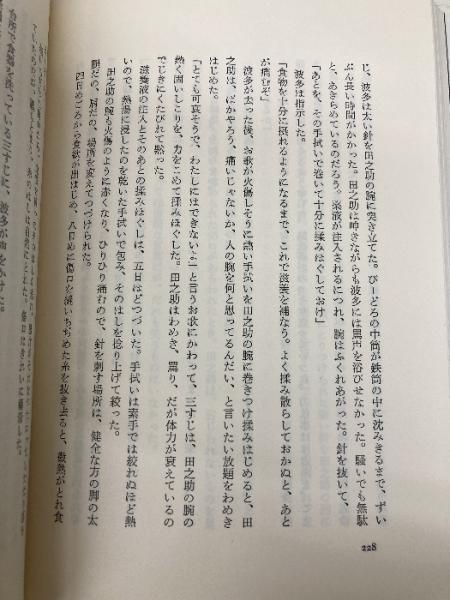 じ、波多は太い針を田之助の腕に突き立てた。びーどろの中筒が鉄筒の中に沈みきるまで、ずい
ぶん長い時間がかかった。田之助は呻きながらも波多には罵声を浴びせなかった。騒いでも無駄
と、あきらめているのだろう。薬液が注入されるにつれ、腕はふくれあがった。針を抜いて、
「あとを、その手拭いで巻いて十分に揉みほぐしておけ」
波多は指示した。
「食物を十分に摂れるようになるまで、これで滋養を補なう。よく揉み散らしておかぬと、あと
が痛むぞ」
波多が去った後、お歌が火傷しそうに熱い手拭いを田之助の腕に巻きつけ揉みはじめると、田
之助は、ばかやろう、痛いじゃないか、人の腕を何と思ってるんだい、と言いたい放題をわめき
はじめた。
「とても可哀そうで、わたしにはできないよ」と言うお歌にかわって、三すじは、田之助の腕の
熱く固いしこりを、力をこめて揉みほぐした。田之助はわめき、罵り、だが体力が衰えているの
でじきにくたびれて黙った。
滋養液の注入とそのあとの揉みほぐしは、五日ほどつづいた。手拭いは素手では絞れぬほど熱
いので、熱湯に浸したのを乾いた手拭いで包み、そのはしを捻り上げて絞った。
田之助の腕も火傷のように赤くなり、ひりひり痛むので、針を刺す場所は、健全な方の脚の太
腿だの、肩だの、場所を変えてつづけられた。
四日めごろから食欲が出はじめ、八日めに傷口を縫いちぢめた糸を抜き去ると、微熱がとれ食
台所で食器を洗っている三すじに、波多が声をかけた。
228